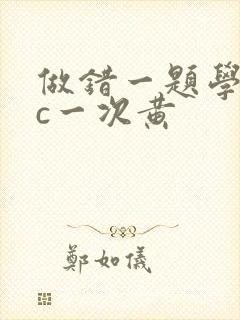 做錯一題學
c一次黃
鄭如儀